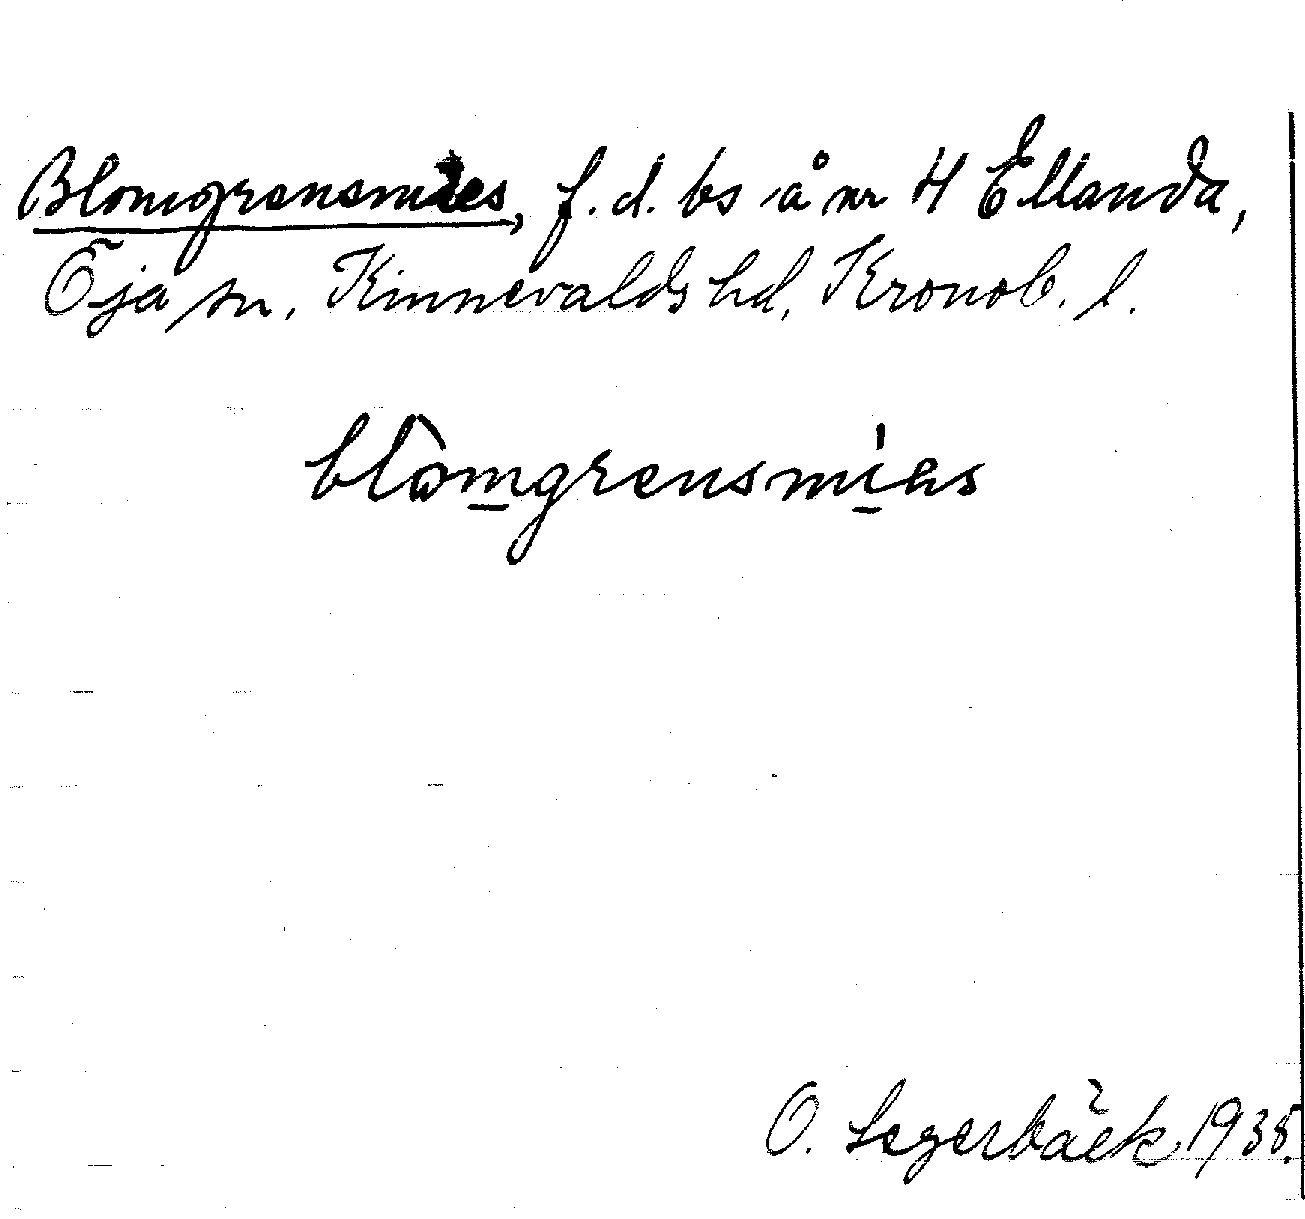 Blomgrensmies, f. d. bs å nr 4 Ellanda,
Öja sn, Kinnevalds hd, Kronob. l.
blòmgrensmíəs
O. Segerbäck 1935.